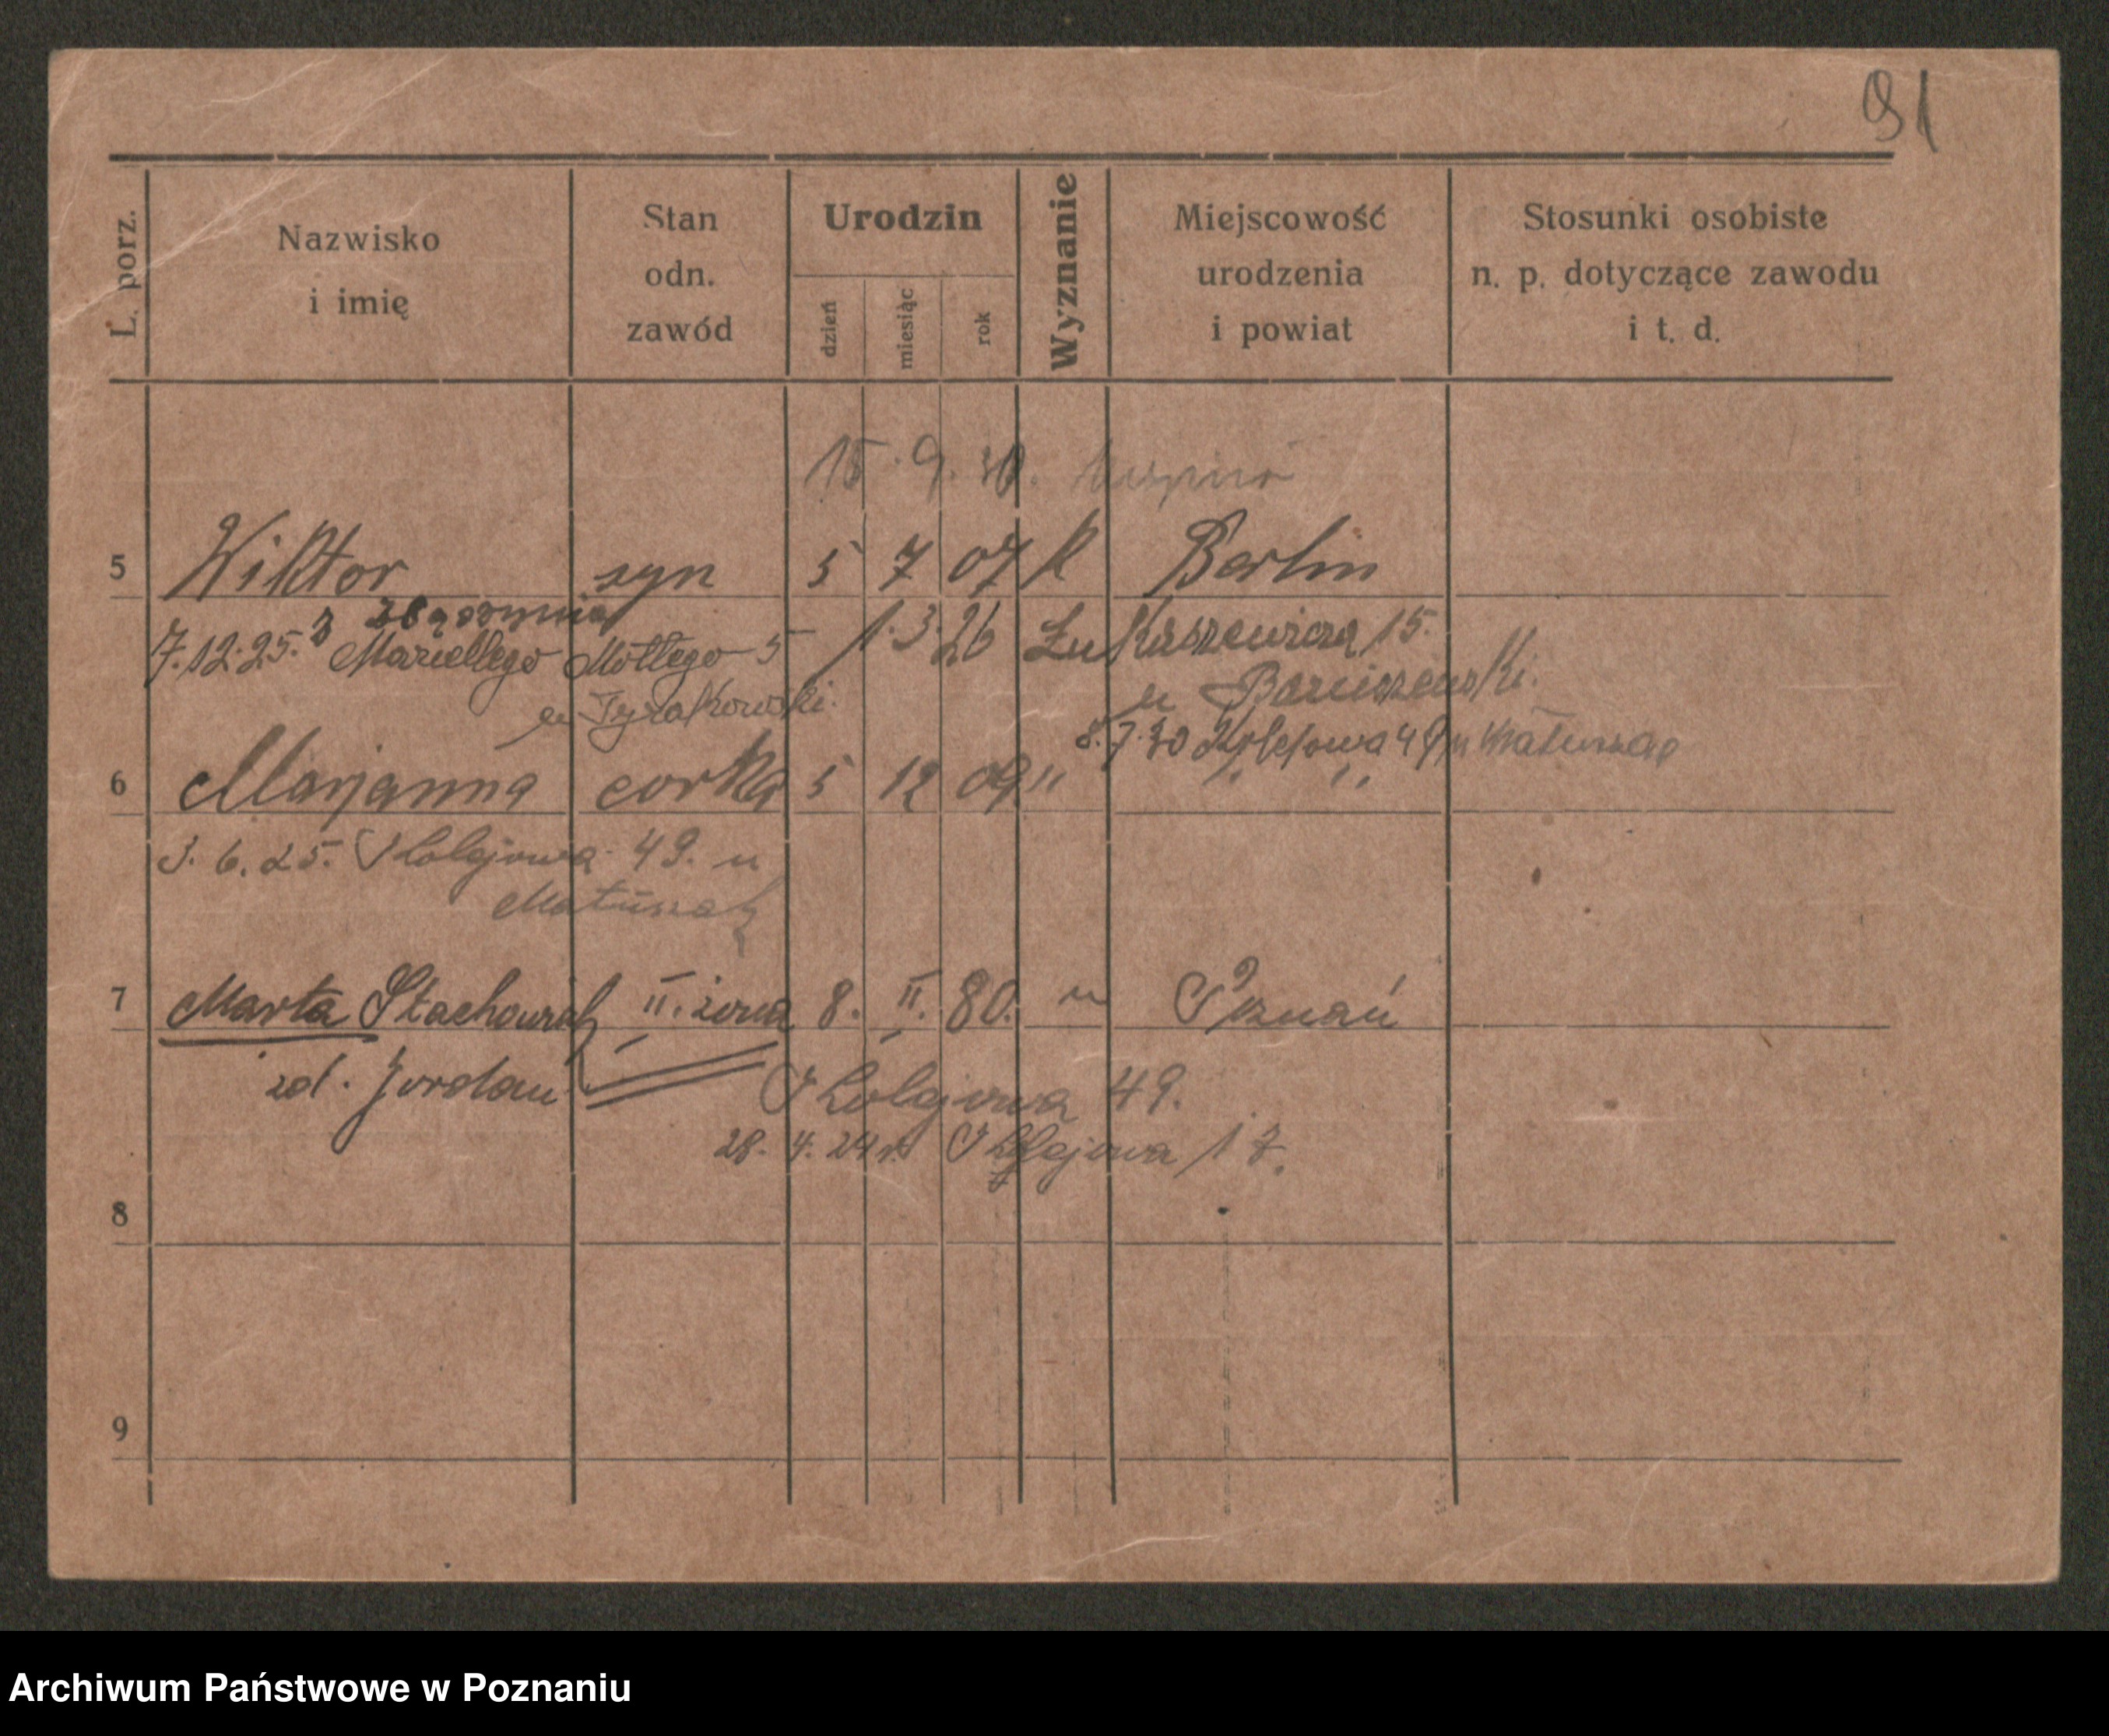 91
L. porz.
Nazwisko
i imię
Stan
odn.
zawód
Urodzin
dzień
miesiąc
rok
Wyznanie
Miejscowość
urodzenia
i powiat
Stosunki osobiste
n. p. dotyczące zawodu
i t. d.
15. 9. 30.
5 Wiktor syn 5 7 07 k Berlin
7.12.25. z Mottego 5 1.3.26 Łukaszewicza 15.
u Tyrakowski. u
8.7.30 Kolejowa 49 u Matuszak
6 Marjanna corka 5 12 09 " " "
3. 6. 25. Kolejowa 49. u
Matuszak
7 Marta Stachowiak II. żona 8. II. 80. " Poznań
zd. Jordan Kolejowa 49.
28. 4. 24 r. Kolejowa 17.
8
9
Archiwum Państwowe w Poznaniu